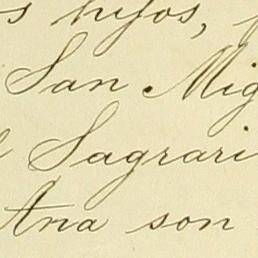 s hijos,
San Mig
Sagrari
Ana son